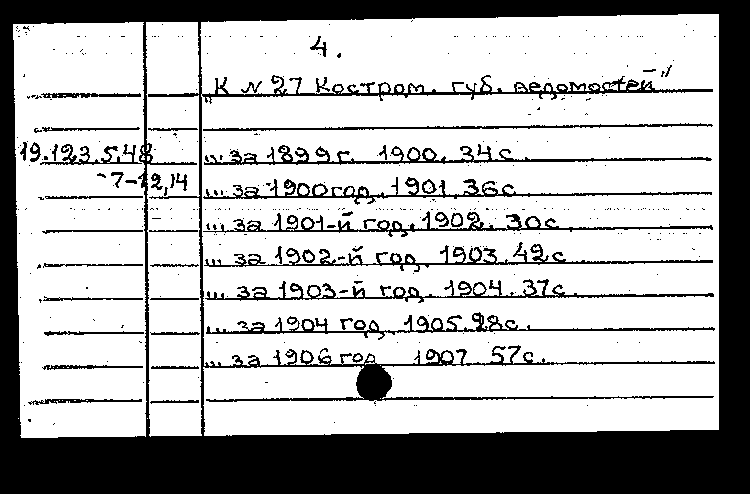 4.
„К № 27 Костром. губ. ведомостей"
19.123.5.48 ... за 1899 г. 1900. 34 с.
-7-12,14 ... за 1900 год. 1901. 36 с.
... за 1901-й год. 1902. 30 с.
... за 1902-й год. 1903. 42 с
... за 1903-й год. 1904. 37 с.
... за 1904 год 1905. 28 с.
... за 1906 год 1907 57 с.